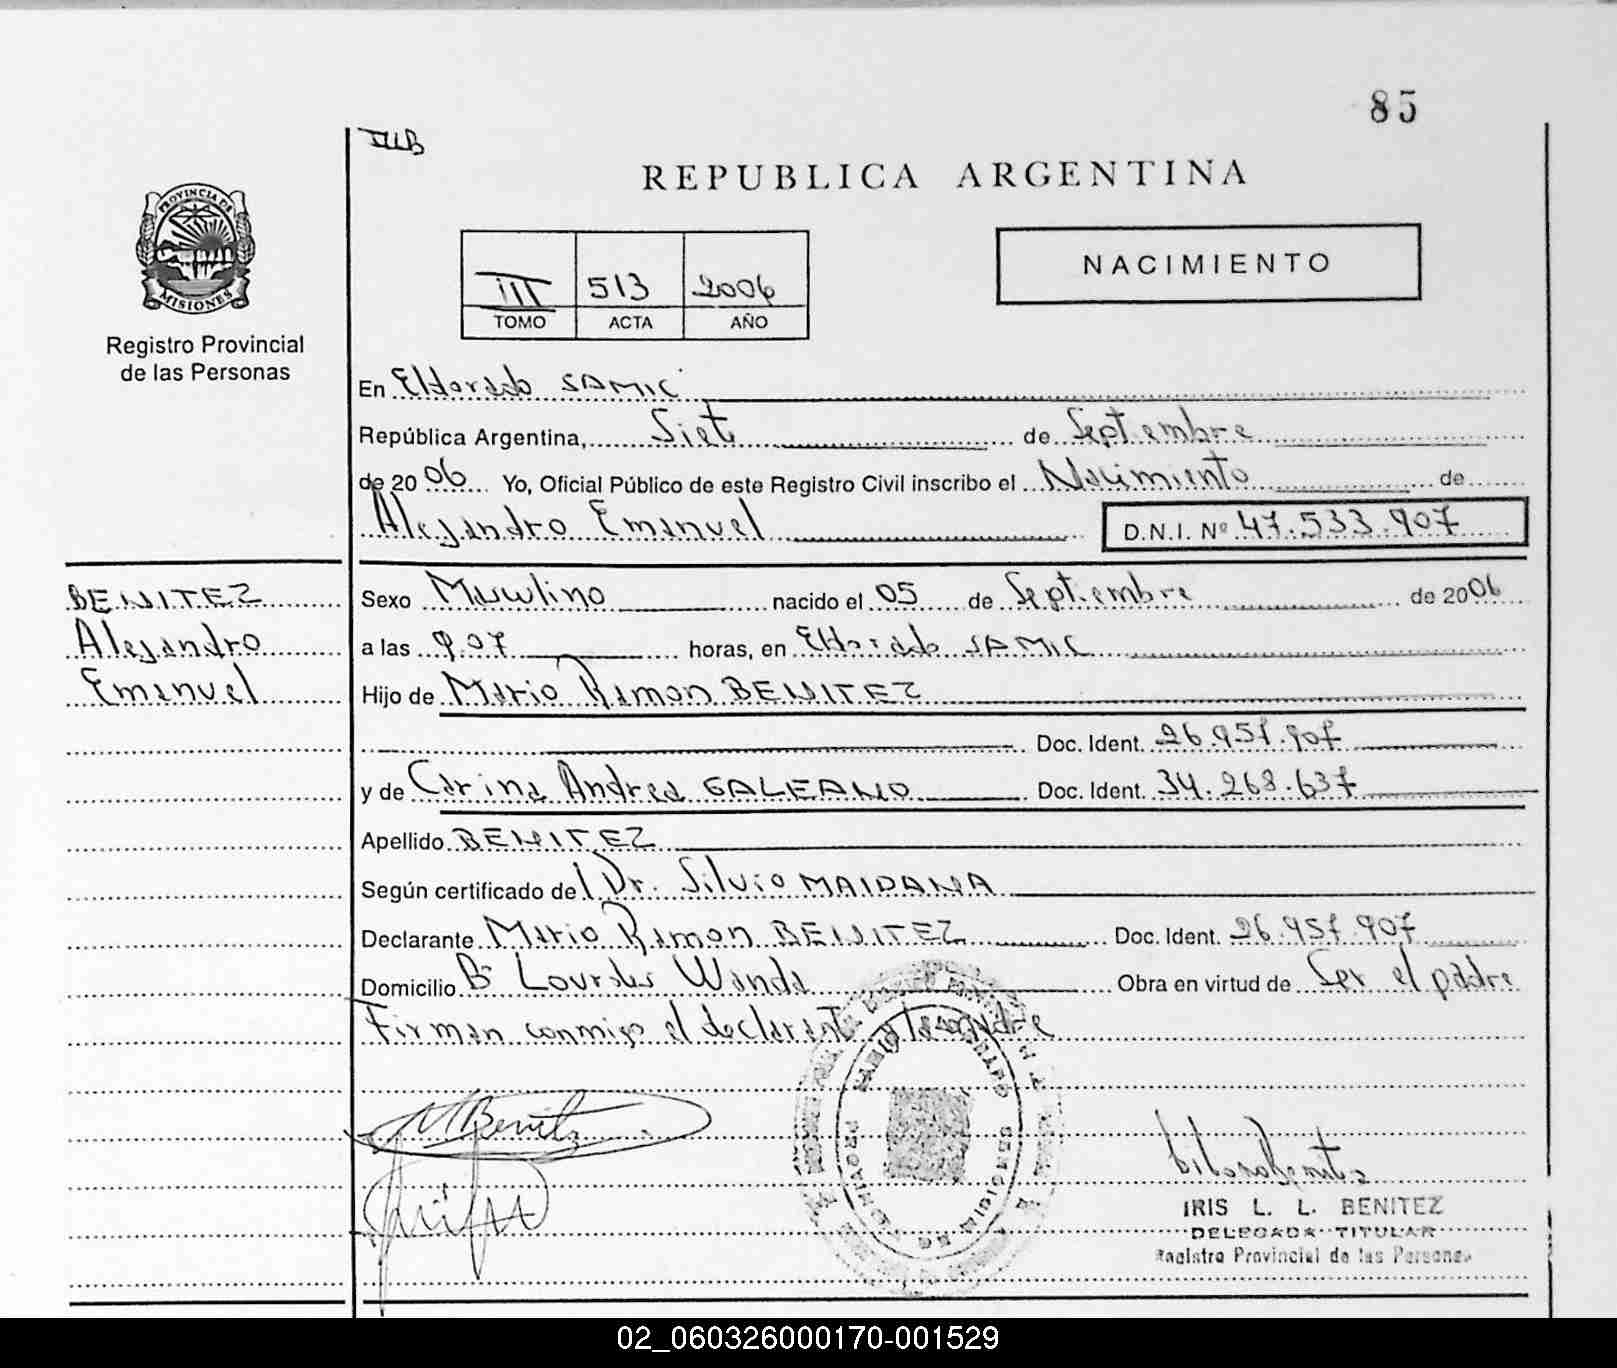 85
IIIB
REPUBLICA ARGENTINA
PROVINCIA DE
MISIONES
Registro Provincial
de las Personas
III 513 2006
TOMO ACTA AÑO
NACIMIENTO
En Eldorado SAMIC
República Argentina, Siete de Septiembre
de 2006 Yo, Oficial Público de este Registro Civil inscribo el Nacimiento de
Alejandro Emanuel D.N.I. Nº 47.533.907
BENITEZ
Alejandro
Emanuel
Sexo Masculino nacido el 05 de Septiembre de 2006
a las 9.07 horas, en Eldorado SAMIC
Hijo de Mario Ramon BENITEZ
Doc. Ident. 26.957.907
y de Carina Andrea GALEANO Doc. Ident. 34.268.637
Apellido BENITEZ
Según certificado del Dr. Silvio MAIDANA
Declarante Mario Ramon BENITEZ Doc. Ident. 26.957.907
Domicilio Bº Lourdes Wanda Obra en virtud de Ser el padre
Firman conmigo el declarante y la madre
MBenitez
IRIS L. L. BENITEZ
DELEGADA TITULAR
Registro Provincial de las Personas
02_060326000170-001529